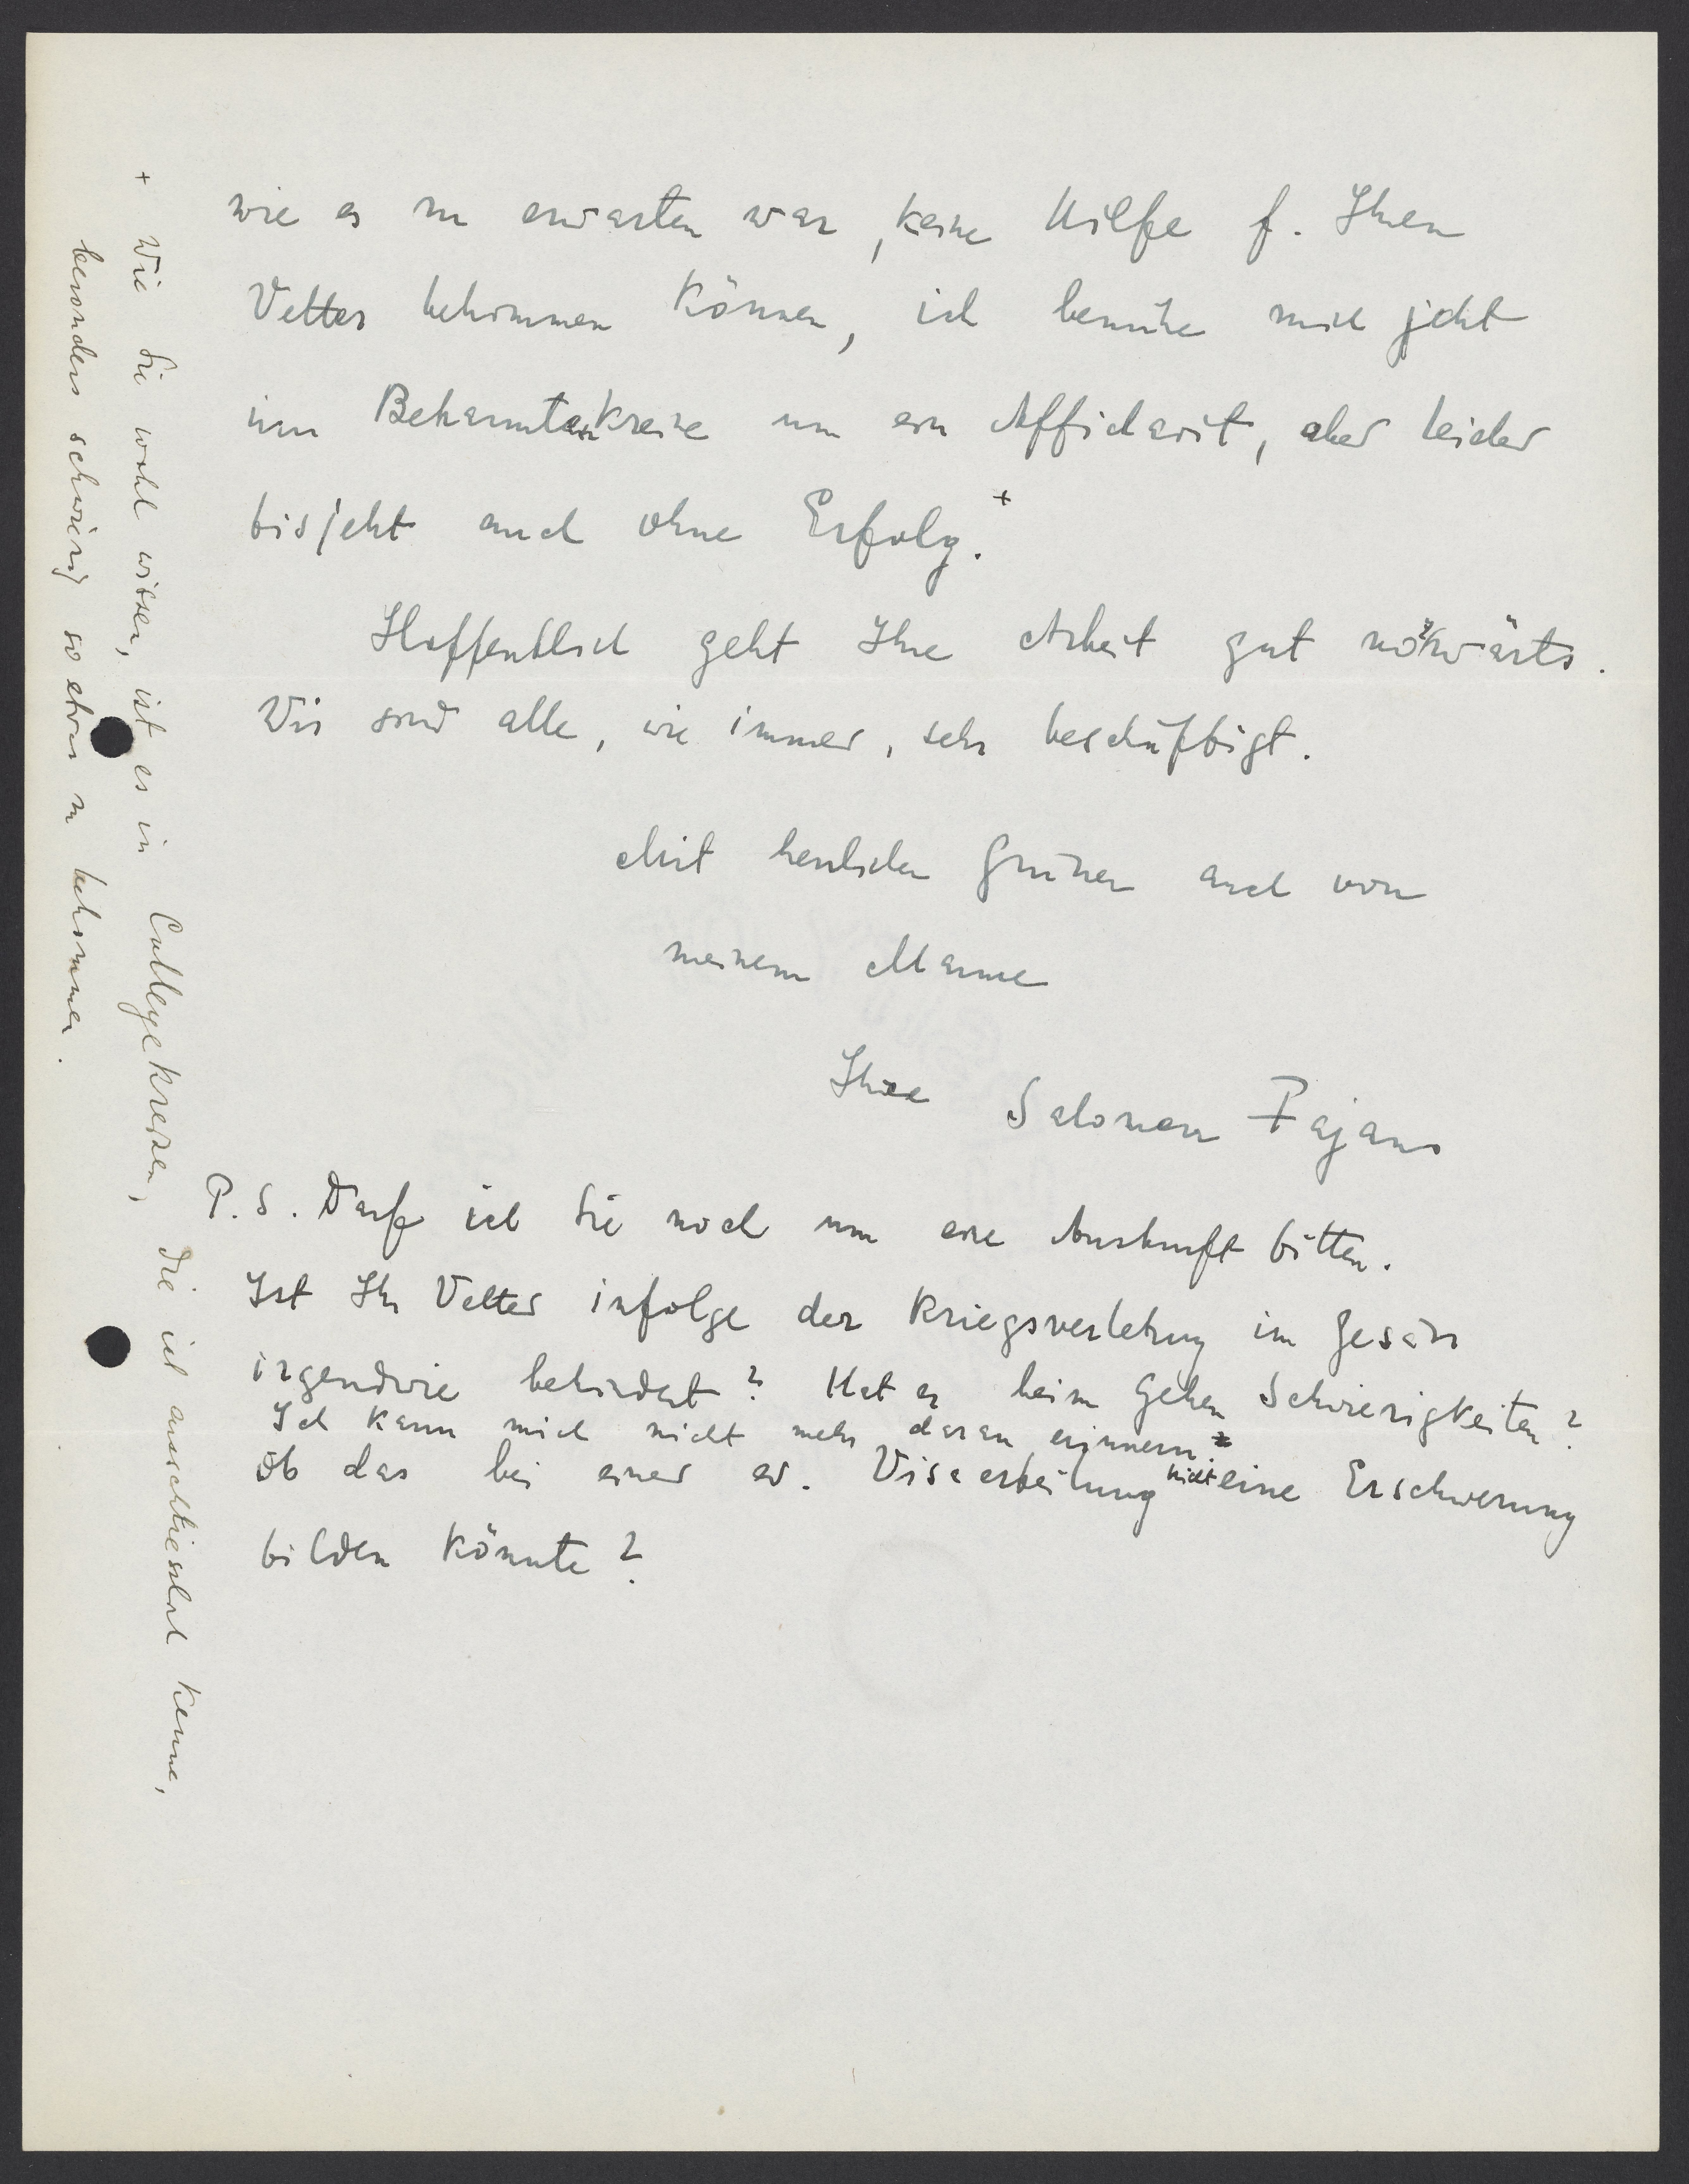 wie es zu erwarten war, keine Hilfe f. Ihren
Vetter bekommen können, ich bemühe mich jetzt
im Bekanntenkreise um ein Affidavit, aber leider
bisjetzt auch ohne Erfolg.+
Hoffentlich geht Ihre Arbeit gut vorwärts.
Wir sind alle, wie immer, sehr beschäftigt.
Mit herzlichen Grüßen auch von
meinem Manne
Ihre Salomea Fajans
P.S. Darf ich Sie noch um eine Auskunft bitten.
Ist Ihr Vetter infolge der Kriegsverletzung im Gesäss
irgendwie behindert? Hat er beim Gehen Schwierigkeiten?
Ich kann mich nicht mehr daran erinnern
Ob das bei einer ev. Visaerteilung nicht eine Erschwerung
bilden könnte?
+ Wie Sie wohl wissen, ist es in Collegekreisen, die ich ausschliesslich kenne,
besonders schwierig so etwas zu bekommen.